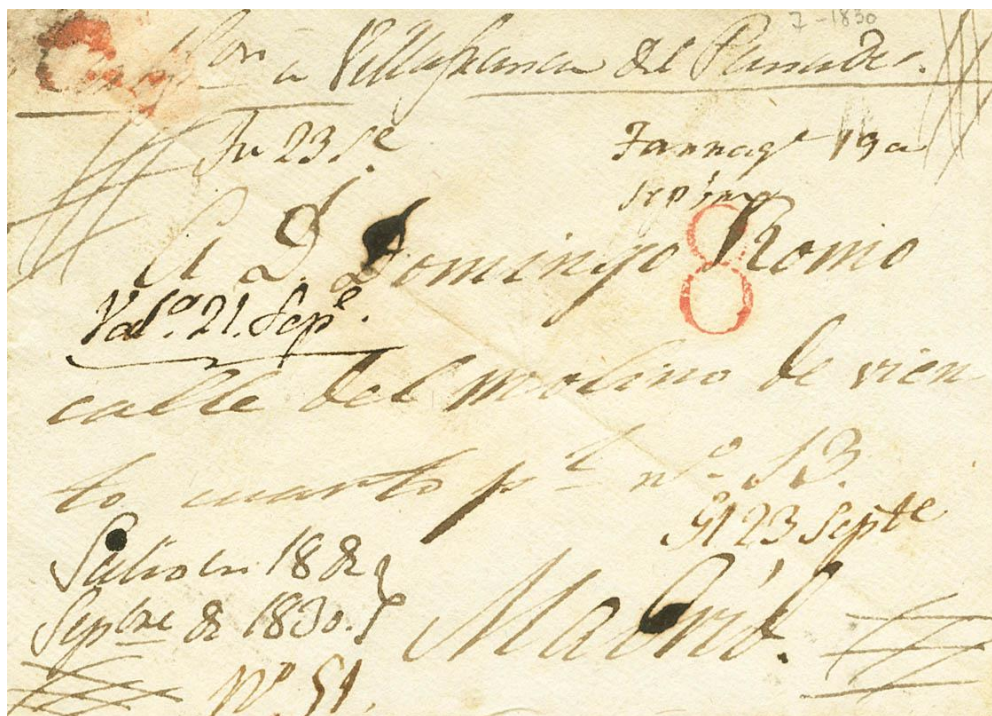 7-1830
a Villafranca del Panades.
Fu 23 Se
Tarragª 19 a
Septbre
8
A D. Domingo Romo
Valª. 21. Sepe.
calle del molino de vien
to cuarto pl nº 13.
Gl 23 Septe
Salio en 18 de
Septbre de 1830.
Madrid.
Nº 51.